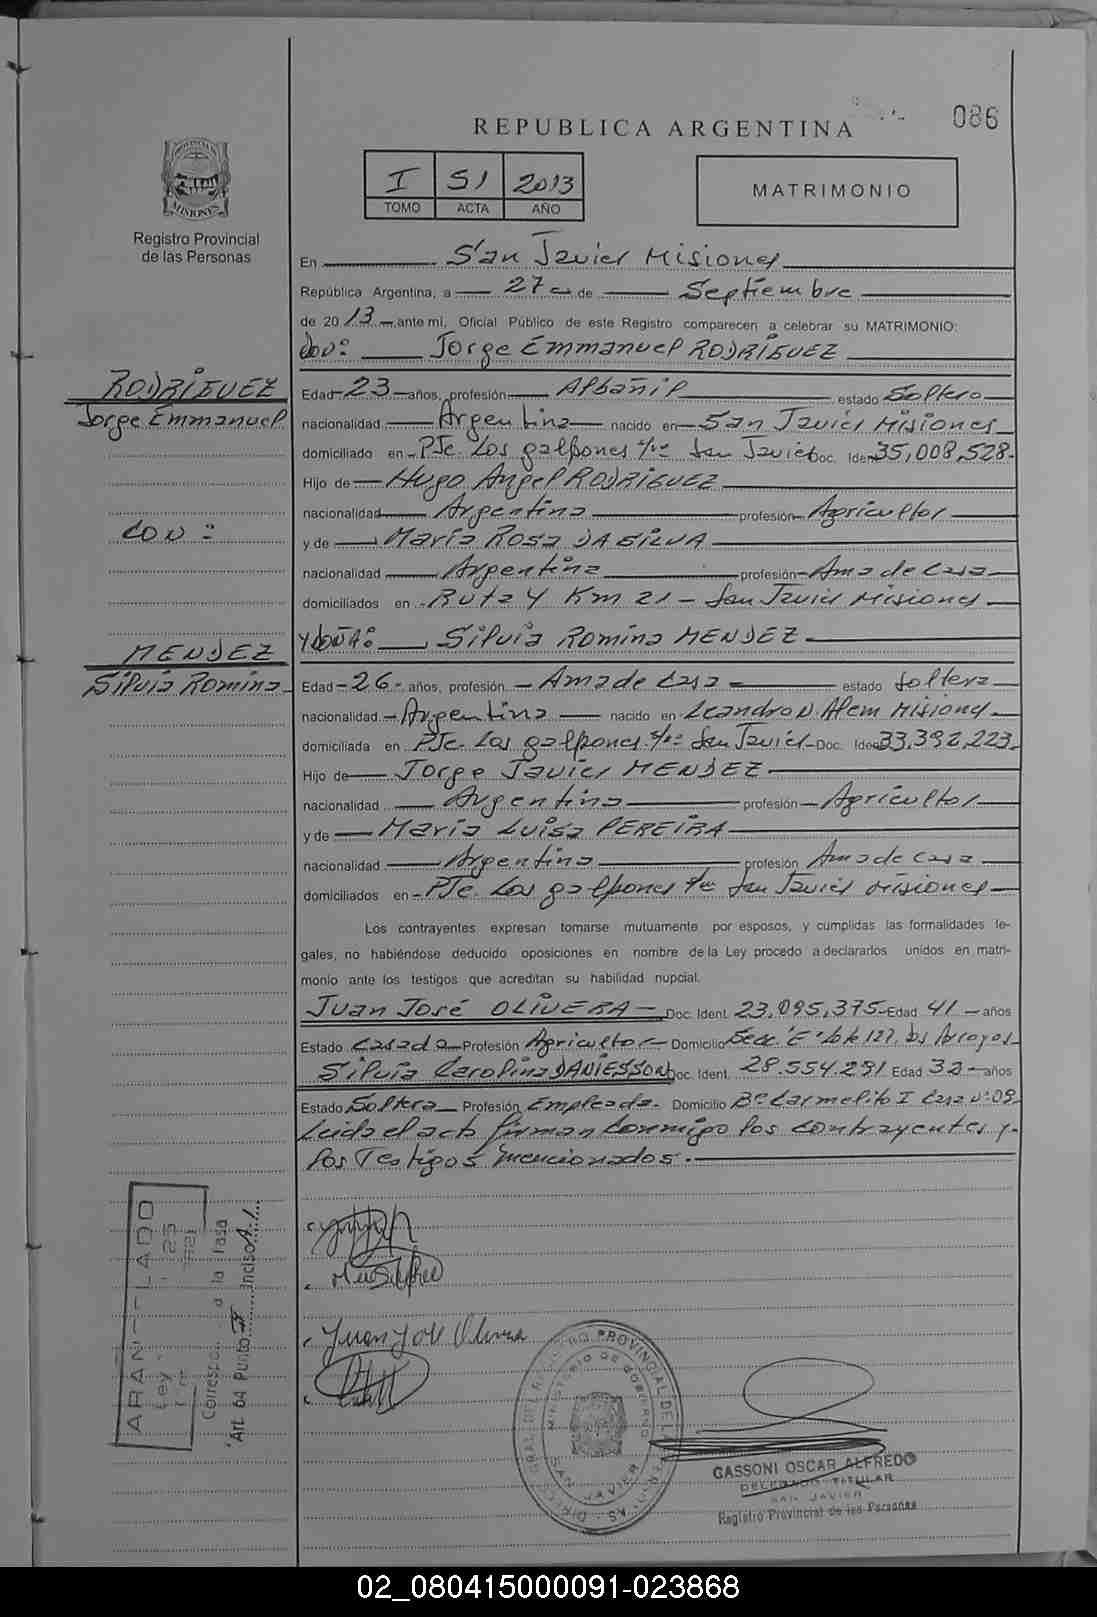 086
REPUBLICA ARGENTINA
I 51 2013
TOMO ACTA AÑO
MATRIMONIO
PROVINCIA DE
MISIONES
Registro Provincial
de las Personas
En San Javier Misiones
República Argentina, a 27 de Septiembre
de 2013 ante mi, Oficial Público de este Registro comparecen a celebrar su MATRIMONIO:
DON: Jorge Emmanuel RODRIGUEZ
RODRIGUEZ
Jorge Emmanuel
CON:
MENDEZ
Silvia Romina
Edad 23 años, profesión Albañil estado Soltero
nacionalidad Argentina nacido en San Javier Misiones
domiciliado en Pje. Los galpones s/n: San Javier Doc. Iden 35,008,528.
Hijo de Hugo Angel RODRIGUEZ
nacionalidad Argentina profesión Agricultor
y de María Rosa DA SILVA
nacionalidad Argentina profesión Ama de Casa
domiciliados en Ruta 4 Km 21 - San Javier Misiones
Y DOÑA: Silvia Romina MENDEZ
Edad 26 años, profesión Ama de Casa estado Soltera
nacionalidad Argentina nacido en Leandro N. Alem Misiones
domiciliada en Pje. Los galpones s/n: San Javier Doc. Iden 33,392,223.
Hijo de Jorge Javier MENDEZ
nacionalidad Argentina profesión Agricultor
y de María Luisa PEREIRA
nacionalidad Argentina profesión Ama de Casa
domiciliados en Pje. Los galpones s/n San Javier Misiones
Los contrayentes expresan tomarse mutuamente por esposos, y cumplidas las formalidades le-
gales, no habiéndose deducido oposiciones en nombre de la Ley procedo a declararlos unidos en matri-
monio ante los testigos que acreditan su habilidad nupcial.
Juan José OLIVERA Doc. Ident. 23,095,375 Edad 41 años
Estado Casado Profesión Agricultor Domicilio Secc. "E" lote 127, los Arroyos
Silvia Carolina DANIESSON Doc. Ident. 28.554.291 Edad 32 años
Estado Soltera Profesión Empleada. Domicilio Bº Carmelito I Casa Nº 09.
Leida el acta firman conmigo los contrayentes y
los Testigos mencionados.
Juan José Olivera
ARANCELADO
Ley
Correspon a la Tasa
Art. 64 Punto II Inciso A-1
PROVINCIAL DE
MINISTERIO DE GOBIERNO
SAN JAVIER
GASSONI OSCAR ALFREDO
DELEGADO TITULAR
SAN JAVIER
Registro Provincial de las Personas
02_080415000091-023868